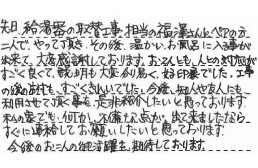 先日、給湯器の取替工事、担当の福澤さんとペアの方
二人で、やって頂き、その後、温かいお風呂に入る事が
出来て、大変感謝しております。お二人とも、人との対応が
すごく良くて、説明も大変分り易く、好印象でした。工事
の後の片付も、すごくきれいでした。今後、知人や友人にも
利用させて頂く事を、是非紹介したいと思っております。
私の家でも、何か、不備な点が、出て来ましたなら
すぐに連絡してお願いしたいと思っております。
今後のお二人の御活躍を期待しております。